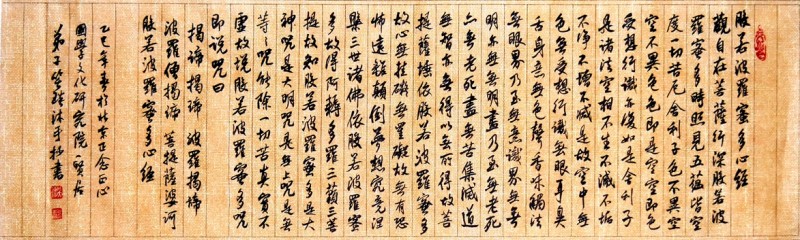 般若波羅蜜多心經
觀自在菩薩行深般若波
羅蜜多時照見五蘊皆空
度一切苦厄舍利子色不異空
空不異色色即是空空即色
受想行識亦復如是舍利子
是諸法空相不生不滅不垢
不淨不增不減是故空中無
色無受想行識無眼耳鼻
舌身意無色聲香味觸法
無眼界乃至無意識界無無
明亦無無明盡乃至無老死
亦無老死盡無苦集滅道
無智亦無得以無所得故菩
提薩埵依般若波羅蜜多
故心無罣礙無罣礙故無有恐
怖遠離顛倒夢想究竟涅
槃三世諸佛依般若波羅蜜
多故得阿耨多羅三藐三菩
提故知般若波羅蜜多是大
神咒是大明咒是無上咒是無
等等咒能除一切苦真實不
虛故說般若波羅蜜多咒
即說咒曰
揭諦揭諦 波羅揭諦
波羅僧揭諦 菩提薩婆訶
般若波羅蜜多心經
乙巳年春於北京正念正心
國學文化研究院一賢居
弟子沐手抄書